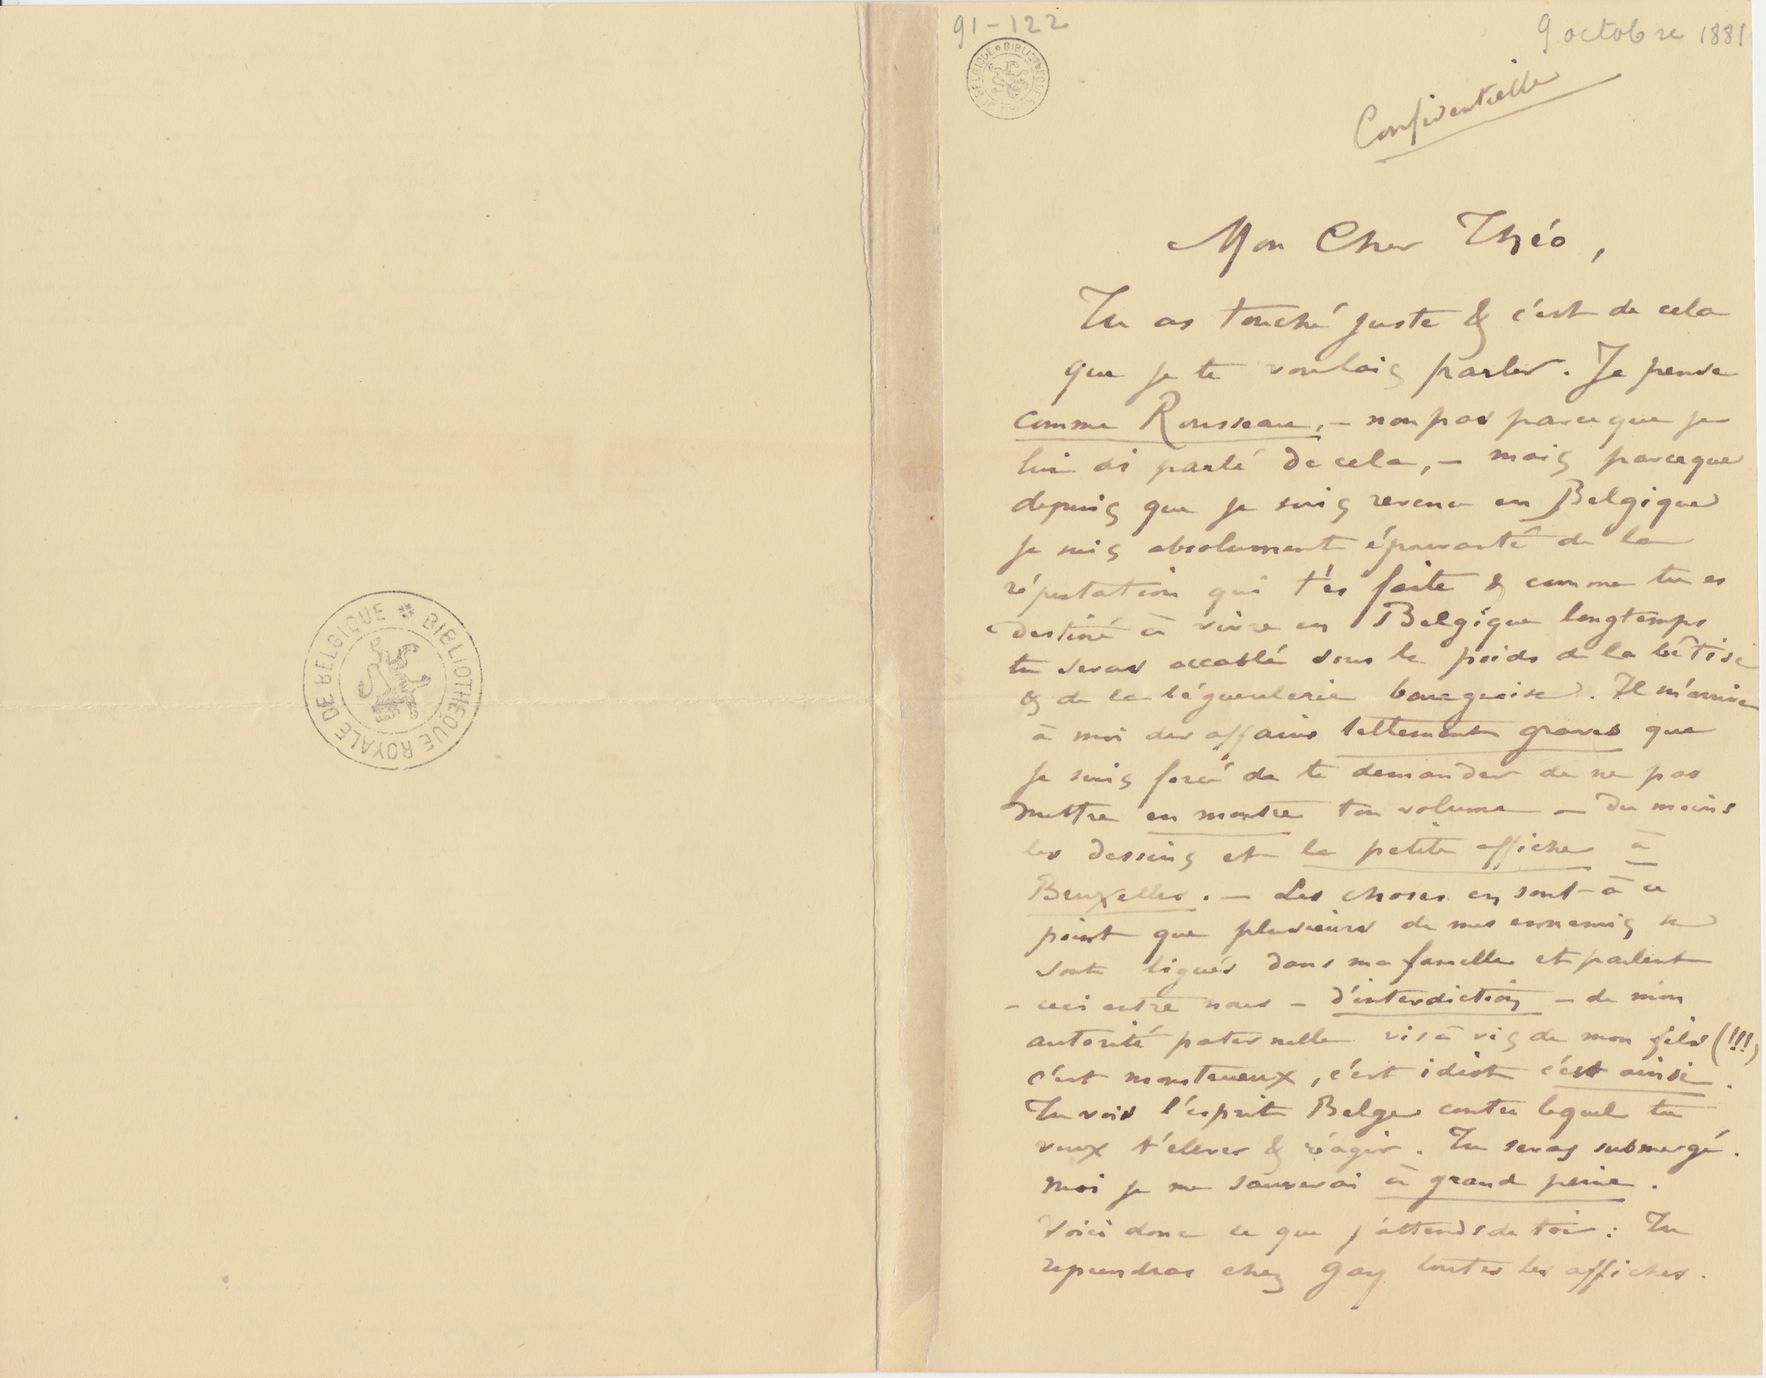 91-122
9 octobre 1881
BIBLIOTHÈQUE ROYALE DE BELGIQUE
Confidentielle
Mon Cher Théo,
Tu as touché juste & c'est de cela
que je te voulais parler. Je pense
comme Rousseau, – non pas parceque je
lui ai parlé de cela, – mais parceque
depuis que je suis revenu en Belgique
je suis absolument épouvanté de la
réputation qui t'es faite & comme tu es
destiné à vivre en Belgique longtemps
tu seras accablé sous le poids de la bêtise
& de la bégueulerie bourgeoise. Il m'arrive
à moi des affaires tellement graves que
je suis forcé de te demander de ne pas
mettre en montre ton volume – du moins
les dessins et la petite affiche à
Bruxelles. – Les choses en sont à ce
point que plusieurs de mes ennemis se
sont ligués dans ma famille et parlent
– ceci entre nous – d'interdiction – de mon
autorité paternelle vis à vis de mon fils (!!!)
c'est monstrueux, c'est idiot c'est ainsi.
Tu vois l'esprit Belge contre lequel tu
veux t'élever & réagir. Tu seras submergé.
Moi je me sauverai à grand peine.
Voici donc ce que j'attends de toi : Tu
reprendras chez Gay toutes les affiches.
BIBLIOTHÈQUE ROYALE DE BELGIQUE